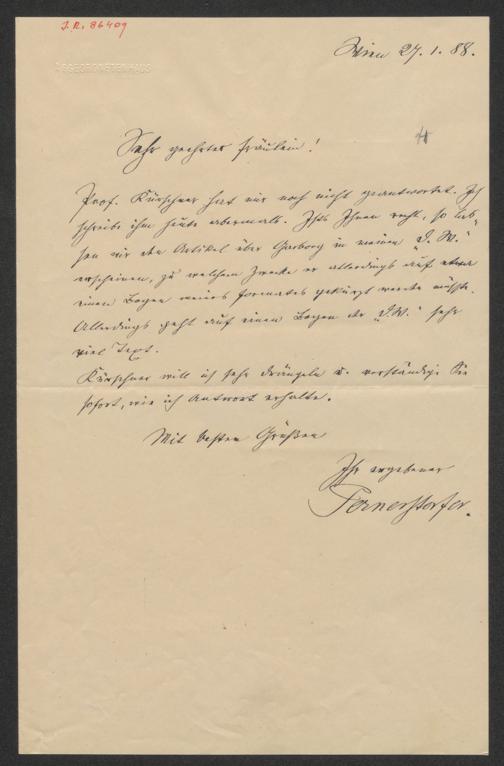 J.R. 86409
ABGEORDNETENHAUS
Wien 27. 1. 88.
Sehr geehrtes Fräulein!
Prof. Kürschner hat mir noch nicht geantwortet. Ich
schreibe ihm heute abermals. Ists Ihnen recht, so las-
sen wir den Artikel über Garborg in meinen „D. W.“
erscheinen, zu welchem Zwecke er allerdings auf etwa
einen Bogen meines Formates gekürzt werden müßte.
Allerdings geht auf einen Bogen der „D.W.“ sehr
viel Text.
Kürschner will ich sehr drängeln u. verständige Sie
sofort, wie ich Antwort erhalte.
Mit besten Grüßen
Ihr ergebener
Pernerstorfer.